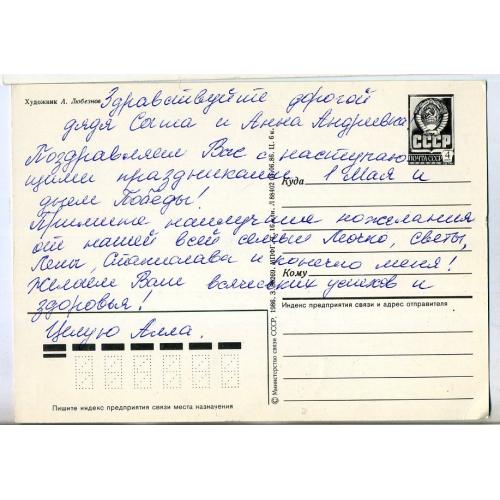 Художник А. Любезнов
Здравствуйте дорогой
дядя Саша и Анна Андреевна
Поздравляем Вас с наступаю
щими праздниками 1 Мая и
днем Победы!
Примите наилучшие пожелания
от нашей всей семьи Лючко, Светы,
Лены, Станислава и конечно меня!
Желаем Вам всяческих успехов и
здоровья!
Целую Алла.
СССР
ПОЧТА СССР
4
Куда
Кому
Индекс предприятия связи и адрес отправителя
© Министерство связи СССР, 1986. З.
Ц. 6 к.
Пишите индекс предприятия связи места назначения